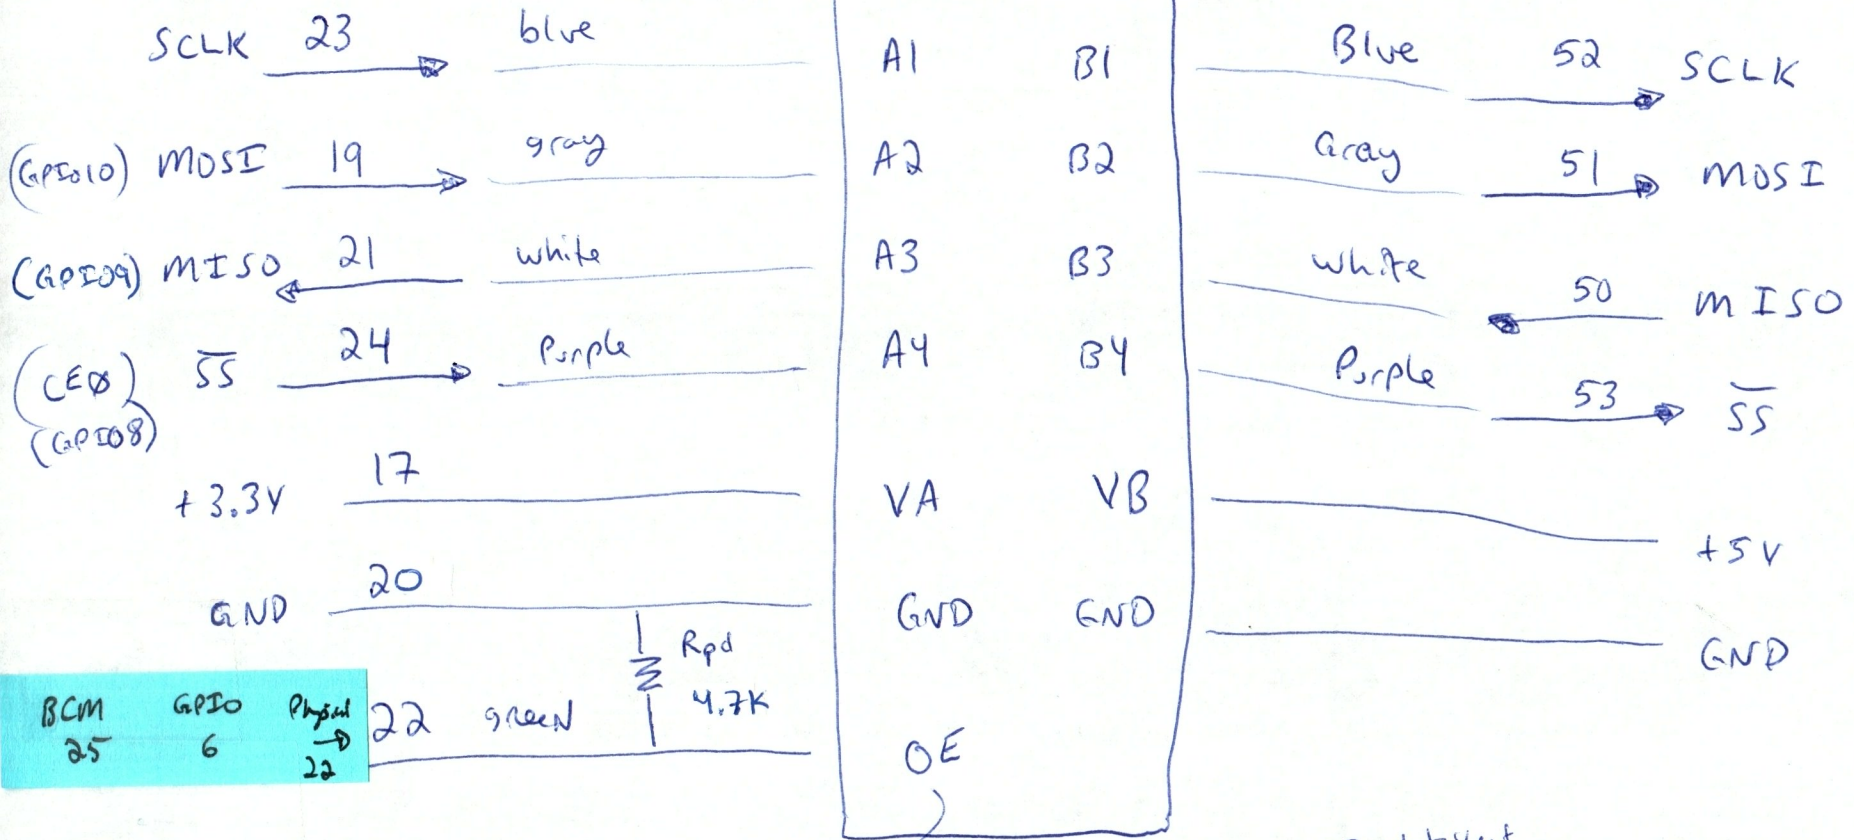 SCLK 23 blue A1 B1 Blue 52 SCLK
(GPIO10) MOSI 19 gray A2 B2 Gray 51 MOSI
(GPIO9) MISO 21 white A3 B3 white 50 MISO
(CE0) SS 24 Purple A4 B4 Purple 53 SS
(GPIO8)
+3.3V 17 VA VB +5V
GND 20 GND GND GND
Rpd
4.7K
BCM GPIO Physical 22 green OE
25 6 22